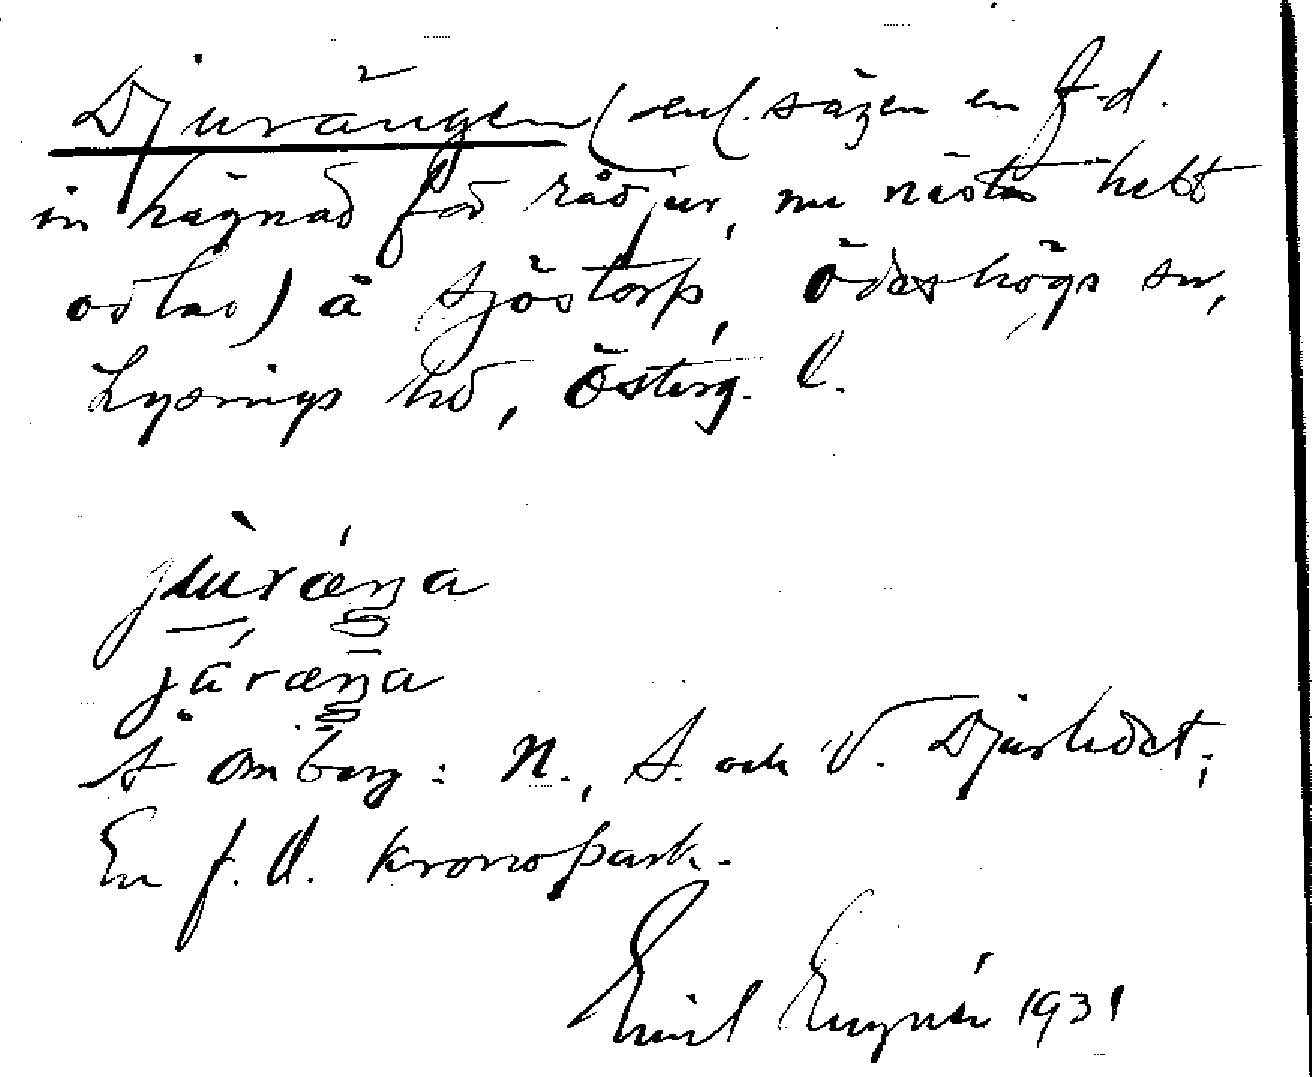 Djurängen (enl. sägen en f.d.
inhägnad för rådjur, nu nästan helt
odlad) å Sjöstorp, Ödeshögs sn,
Lysings hd, Österg. l.
juræŋa
jåræŋa
Å Omberg: N., S. och V. Djurledet;
En f.d. kronopark.
Emil 1931